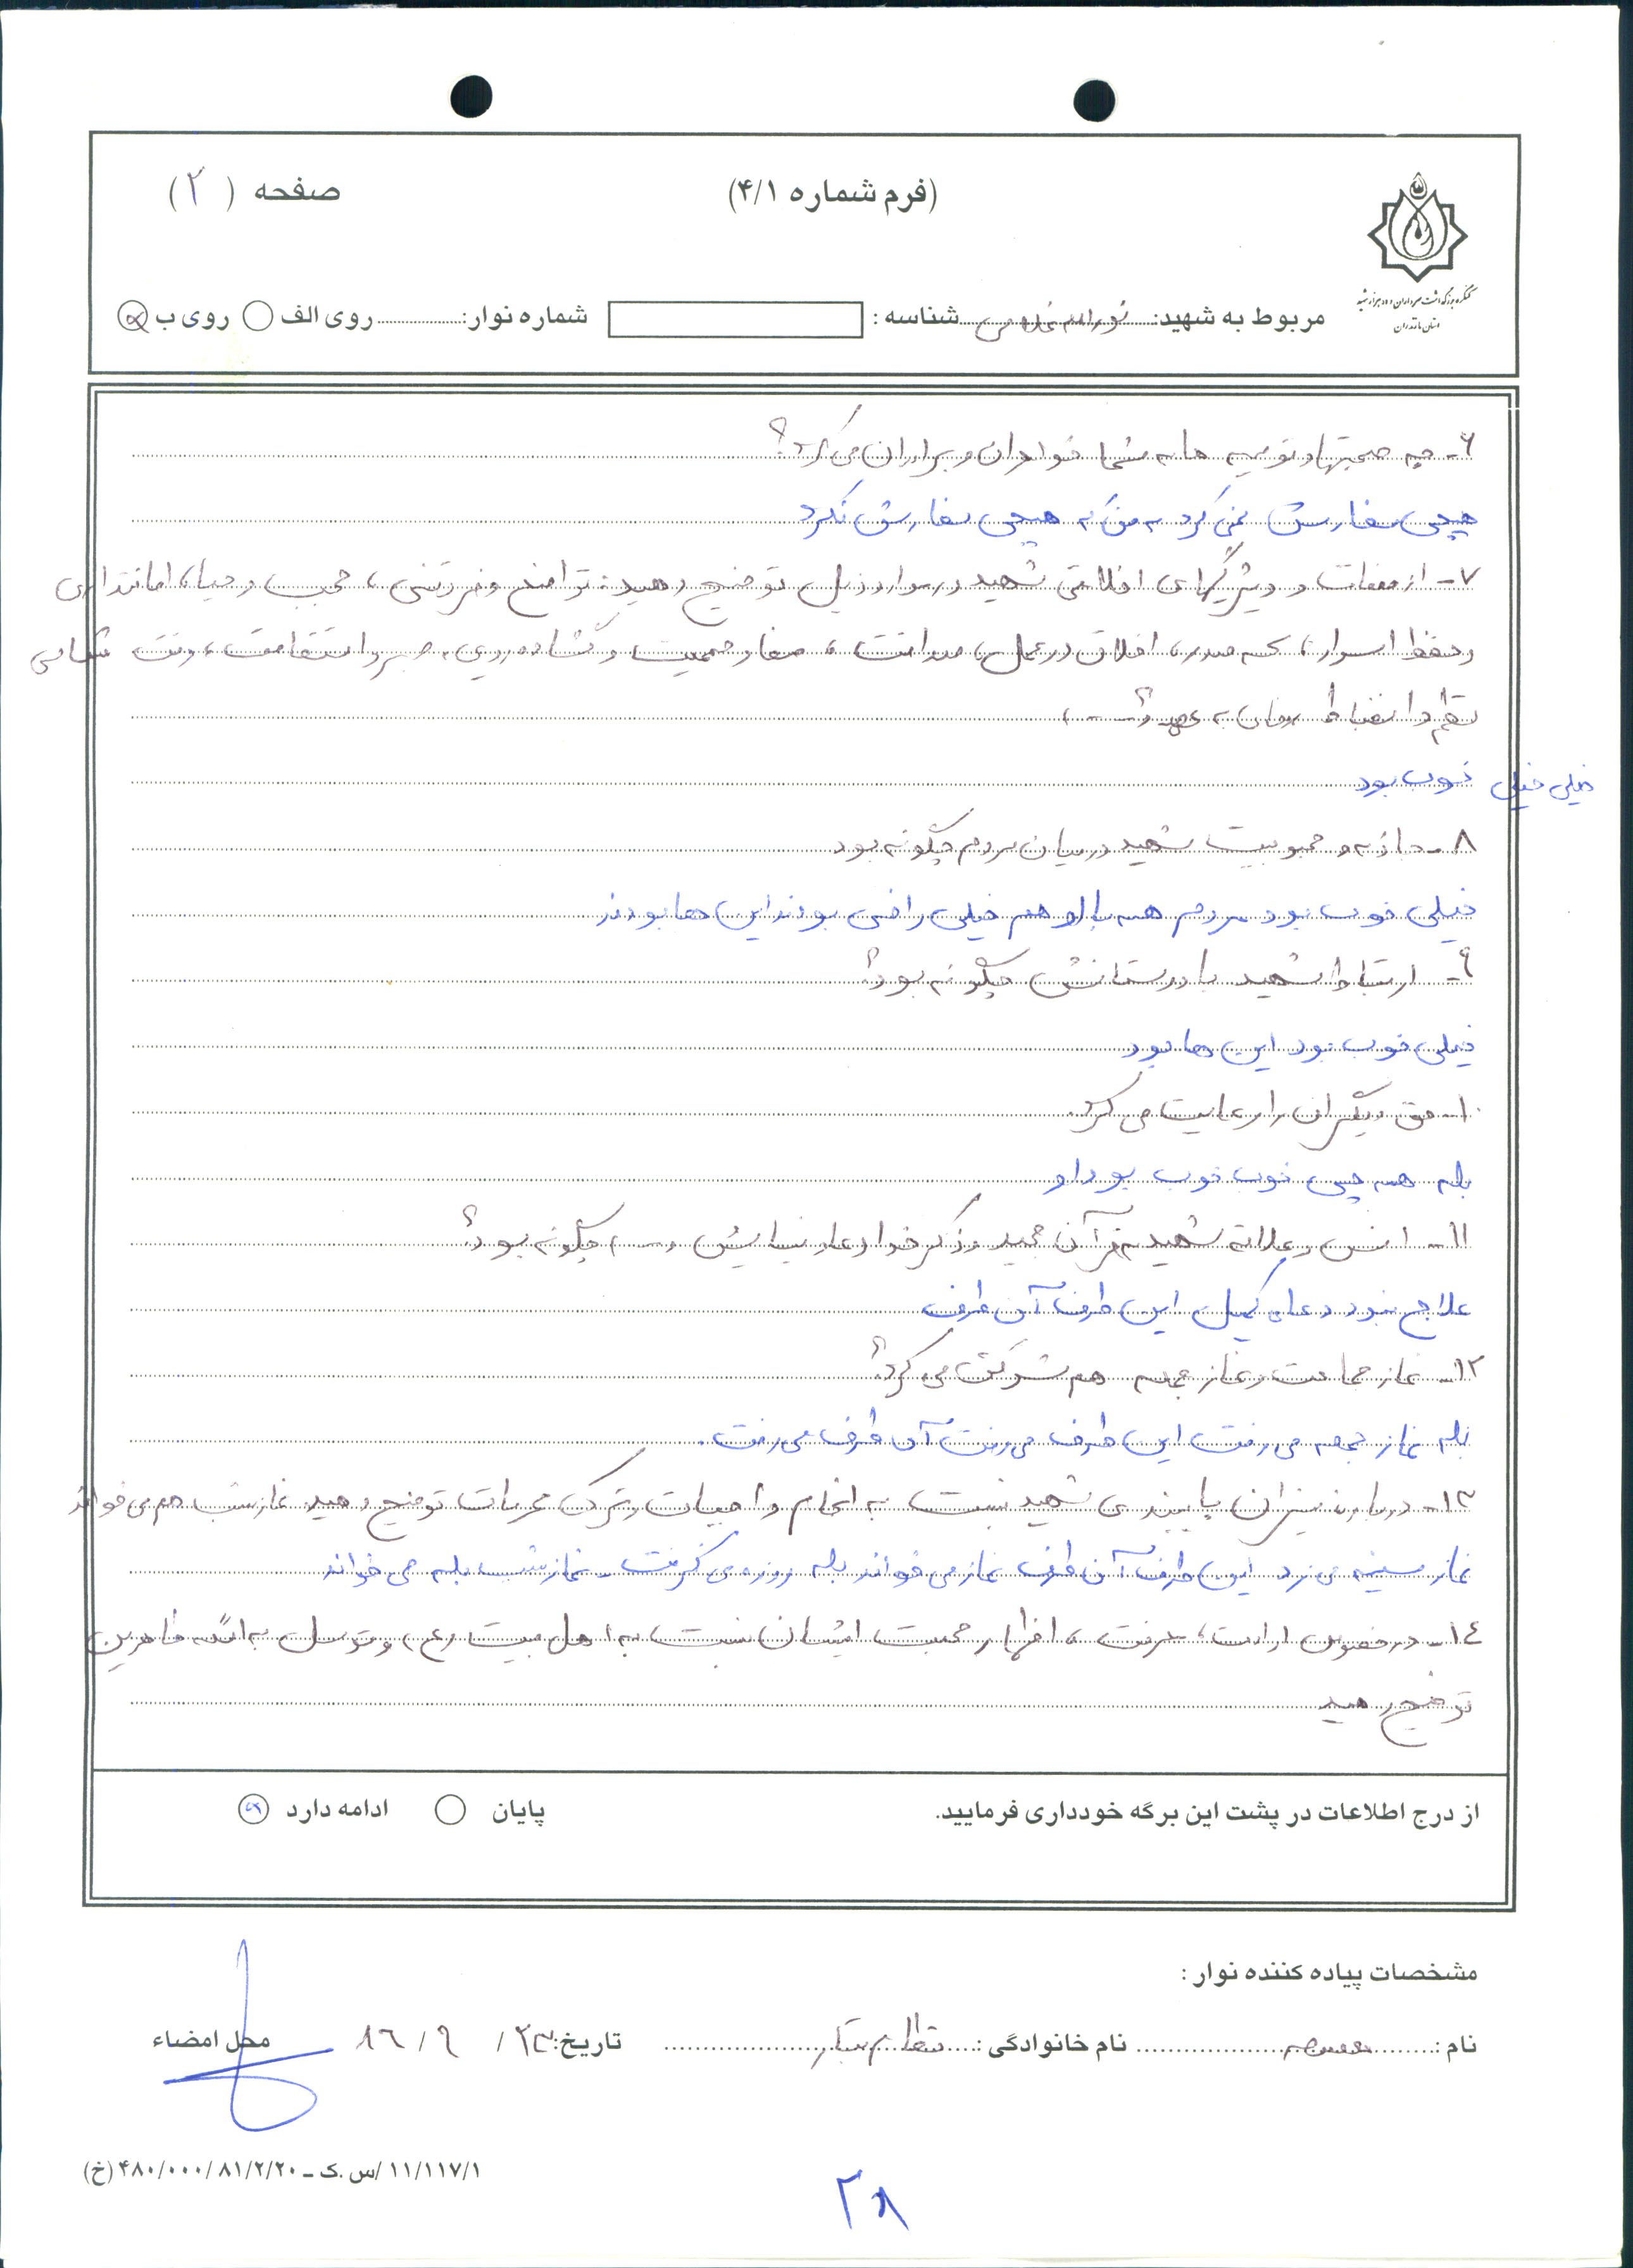 (فرم شماره ۴/۱)
صفحه (۲)
کنگره بزرگداشت سرداران و ده هزار شهید
استان مازندران
مربوط به شهید: نورالله غلامی شناسه : شماره نوار: روی الف روی ب
۶- چه صحبتها و توصیه ها به شما خواهران و برادران می کرد؟
هیچی سفارش نمی کرد به من که هیچی سفارش نکرد
۷- از صفات و ویژگیهای اخلاقی شهید در موارد ذیل توضیح دهید: تواضع و فروتنی، حجب و حیا، امانتداری
و حفظ اسرار، سعه صدر، اخلاق در عمل، صداقت، صفا و صمیمیت و گشاده رویی، صبر و استقامت، وقت شناسی
نظم و انضباط وفای به عهد و ... ؟
خیلی خیلی خوب بود
۸- جاذبه و محبوبیت شهید در میان مردم چگونه بود
خیلی خوب بود مردم همه با او هم خیلی راضی بودند این ها بودند
۹- ارتباط شهید با دوستانش چگونه بود؟
خیلی خوب بود این ها بود
۱۰- حق دیگران را رعایت می کرد.
بله همه چی خوب خوب بود او
۱۱- انس و علاقه شهید به قرآن مجید و ذکر خدا و دعا و نیایش و ... چگونه بود؟
علاج نبود دعای کمیل این طرف آن طرف
۱۲- نماز جماعت و نماز جمعه هم شرکت می کرد؟
بله نماز جمعه می رفت این طرف می رفت آن طرف می رفت.
۱۳- درباره میزان پایبندی شهید نسبت به انجام واجبات و ترک محرمات توضیح دهید نماز شب هم می خواند
نماز سینه می زد این طرف آن طرف نماز می خواند بله روزه می گرفت. نماز شب بله می خواند
۱۴- در خصوص ارادت، معرفت، اظهار محبت ایشان نسبت به اهل بیت (ع) و توسل به ائمه طاهرین
توضیح دهید
از درج اطلاعات در پشت این برگه خودداری فرمایید. پایان ادامه دارد
مشخصات پیاده کننده نوار :
نام : معصومه نام خانوادگی : تاریخ: ۲۳ / ۹ / ۸۶ محل امضاء
۱۱/۱۱۷/۱ /س .ک ـ ۴۸۰/۰۰۰/۸۱/۲/۲۰ (خ)
۲۸